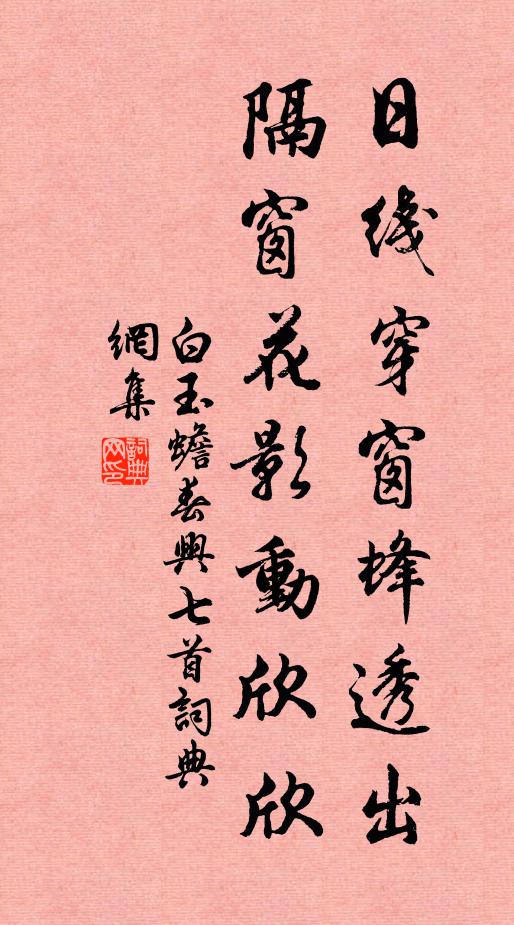 日线穿窗蜂透出
隔窗花影動欣欣
白玉蟾春興七首詞典
網集
詞典
网印